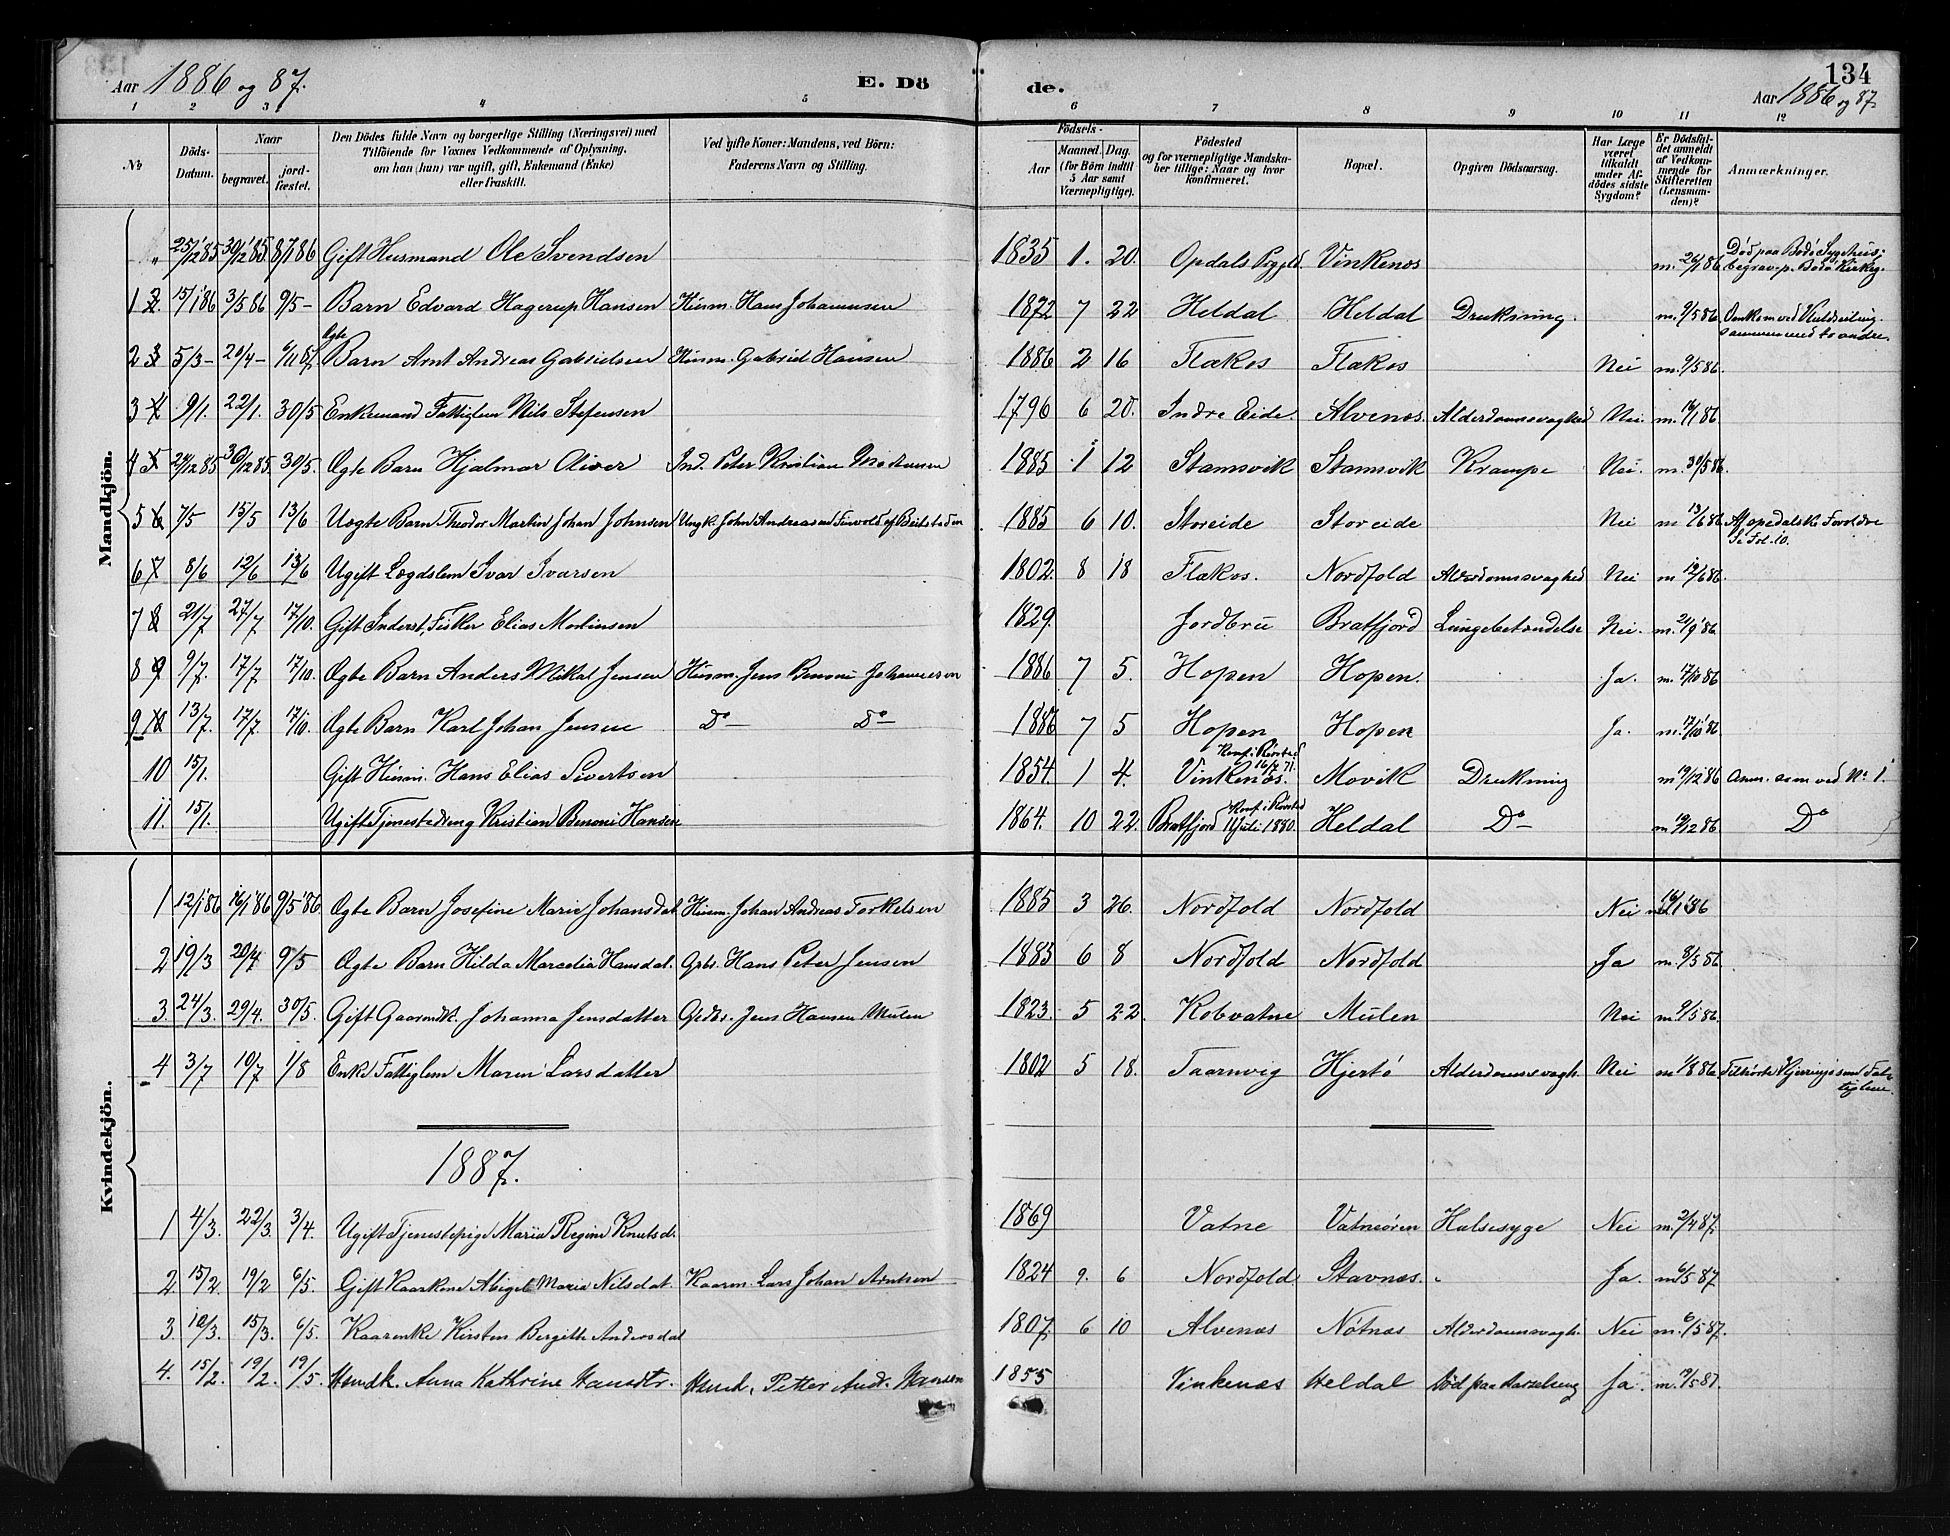 Aar 1886 og 87. E. Dö de. 134
Aar 1886 og 87.
1 2 3 4 5 6 7 8 9 10 11 12
No Döds-Datum. Naar begravet. jord-fæstet. Den Dödes fulde Navn og borgerlige Stilling (Næringsvei) med Tilföiende for Voxnes Vedkommende af Oplysning, om han (hun) var ugift, gift, Enkemand (Enke) eller fraskilt. Ved gifte Koner: Mandens, ved Börn: Faderens Navn og Stilling. Födsels- Aar Maaned. Dag. (for Börn indtil 5 Aar samt Værnepligtige). Födested og for værnepligtige Mandskaber tillige: Naar og hvor konfirmeret. Bopæl. Opgiven Dödsaarsag. Har Læge været tilkaldt under Afdödes sidste Sygdom? Er Dödsfaldet anmeldt af Vedkommende for Skifteretten (Lensmanden)? Anmærkninger.
Mandkjön.
" 25/12 85 30/12 85 8/1 86 Gift Husmand Ole Svendsen 1835 1. 20. Opdals Prgjld. Vinkenæs m. 26/1 86 Död paa Bodö Sygehus, begrav. p. Bodö Kirkeg.
1 15/1 86 3/5 86 9/5 - Barn Edvard Hagerup Hansen Husm. Hans Johannesen 1872 7 22 Heldal Heldal Drukning. m. 9/5 86 Omkom ved Kuldseiling sammen med to andre.
2 5/3 - 20/4 - Ægte Barn Arnt Andreas Gabrielsen Husm. Gabriel Hansen 1886 2 16 Flakos Flakos Nei m. 9/5 86.
3 9/1. 22/1. 30/5 Enkemand Fattiglem Nils Stefensen 1796 6 20. Indre Eide. Alvenæs. Alderdomssvaghed Nei m. 16/1 86
4 30/12 85. 30/5. Ægte Barn Hjalmar Oliver Ind. Peter Kristian 1885 1 12 Stamsvik Stamsvik Krampe Nei. m. 30/5 86.
5 7/5 15/5 13/6 Uægte Barn Theodor Martin Johan Johnsen Ungk. John Andreassen Finvold af Beilstaden 1885 6 10. Storeide Storeide Nei m 13/6 86 Af opedalske Forældre
Se Fol. 10.
6 8/6 12/6 13/6 Ugift Lægdslem Ivar Ivarsen 1802. 8 18 Flakos. Nordfold Alderdomssvaghed Nei m 12/6 86.
7 21/7 27/7 17/10. Gift Inderst, Fisker Elias Mortinsen 1829. Jordbru Bratfjord Lungebetændelse Nei. m. 21/9 86
8 9/7. 17/7 17/10. Ægte Barn Anders Mikal Jensen Husm. Jens Benoni Johannesen 1886 7 5. Hopen Hopen. Ja. m. 17/10 86
9 13/7. 17/7. 17/10. Ægte Barn Karl Johan Jensen Do - Do - 1886 7 5 Hopen Hopen Ja. m. 17/10 86
10 15/1. Gift Husm. Hans Elias Sivertsen 1854. 1 4. Vinkenæs. Konf. i Rørstad 16/7 71. Movik Drukning m 19/12 86 Anm. som ved No 1.
11. 15/1. Ugift Tjenestedreng Kristian Benoni Hansen 1864. 10 22. Bratfjord Konf. i Rørstad 11 Juli 1880. Heldal Do - m 19/12 86 Do
Kvindekjön.
1 12/1 86 16/1 86 9/5 86. Ægte Barn Josefine Marie Johansdat. Husm. Johan Andreas Torkelsen 1885 3 26. Nordfold Nordfold Nei 16/1 86
2 19/3 20/4 9/5 Ægte Barn Hilda Marcelia Hansdat. Grbr. Hans Peter Jensen 1885 6 8 Nordfold Nordfold Ja m. 9/5 86
3 24/3. 29/4. 30/5. Gift Gaarmdk. Johanna Jensdatter Grdbr. Jens Hansen Mulen 1823. 5 22. Kobvatne Mulen Nei m. 9/5 86.
4 3/7 10/7 1/8 Enke Fattiglem Maren Larsdatter 1802 5 18. Taarnvig Hjertö Alderdomssvagh. Nei m 1/8 86. Tilhörte Kjerringö som Fattiglem.
1887.
1 4/3. 22/3. 3/4. Ugift Tjenestepige Maria Regine Knutsd. 1869 Vatne Vatneören Halsesyge Nei m. 2/4 87.
2 15/2. 19/2 6/5. Gift Kaarkone Abigel Maria Nilsdat. Kaarm. Lars Johan Arntsen 1824 9. 6 Nordfold Stavnæs. Ja. m 6/5 87.
3. 10/3. 15/3. 6/5. Kaarenke Kirsten Bergitte Andersdat 1807. 6 10 Alvenæs Nötnæs Alderdomssvagh. Nei m. 6/5 87.
4. 15/2. 19/2. 19/5. Husmdk. Anna Kathrine Hansdtr. Husmd. Petter Andr. Hansen 1855 Vinkenæs Heldal Död paa Barselseng Ja. m. 19/5 87.